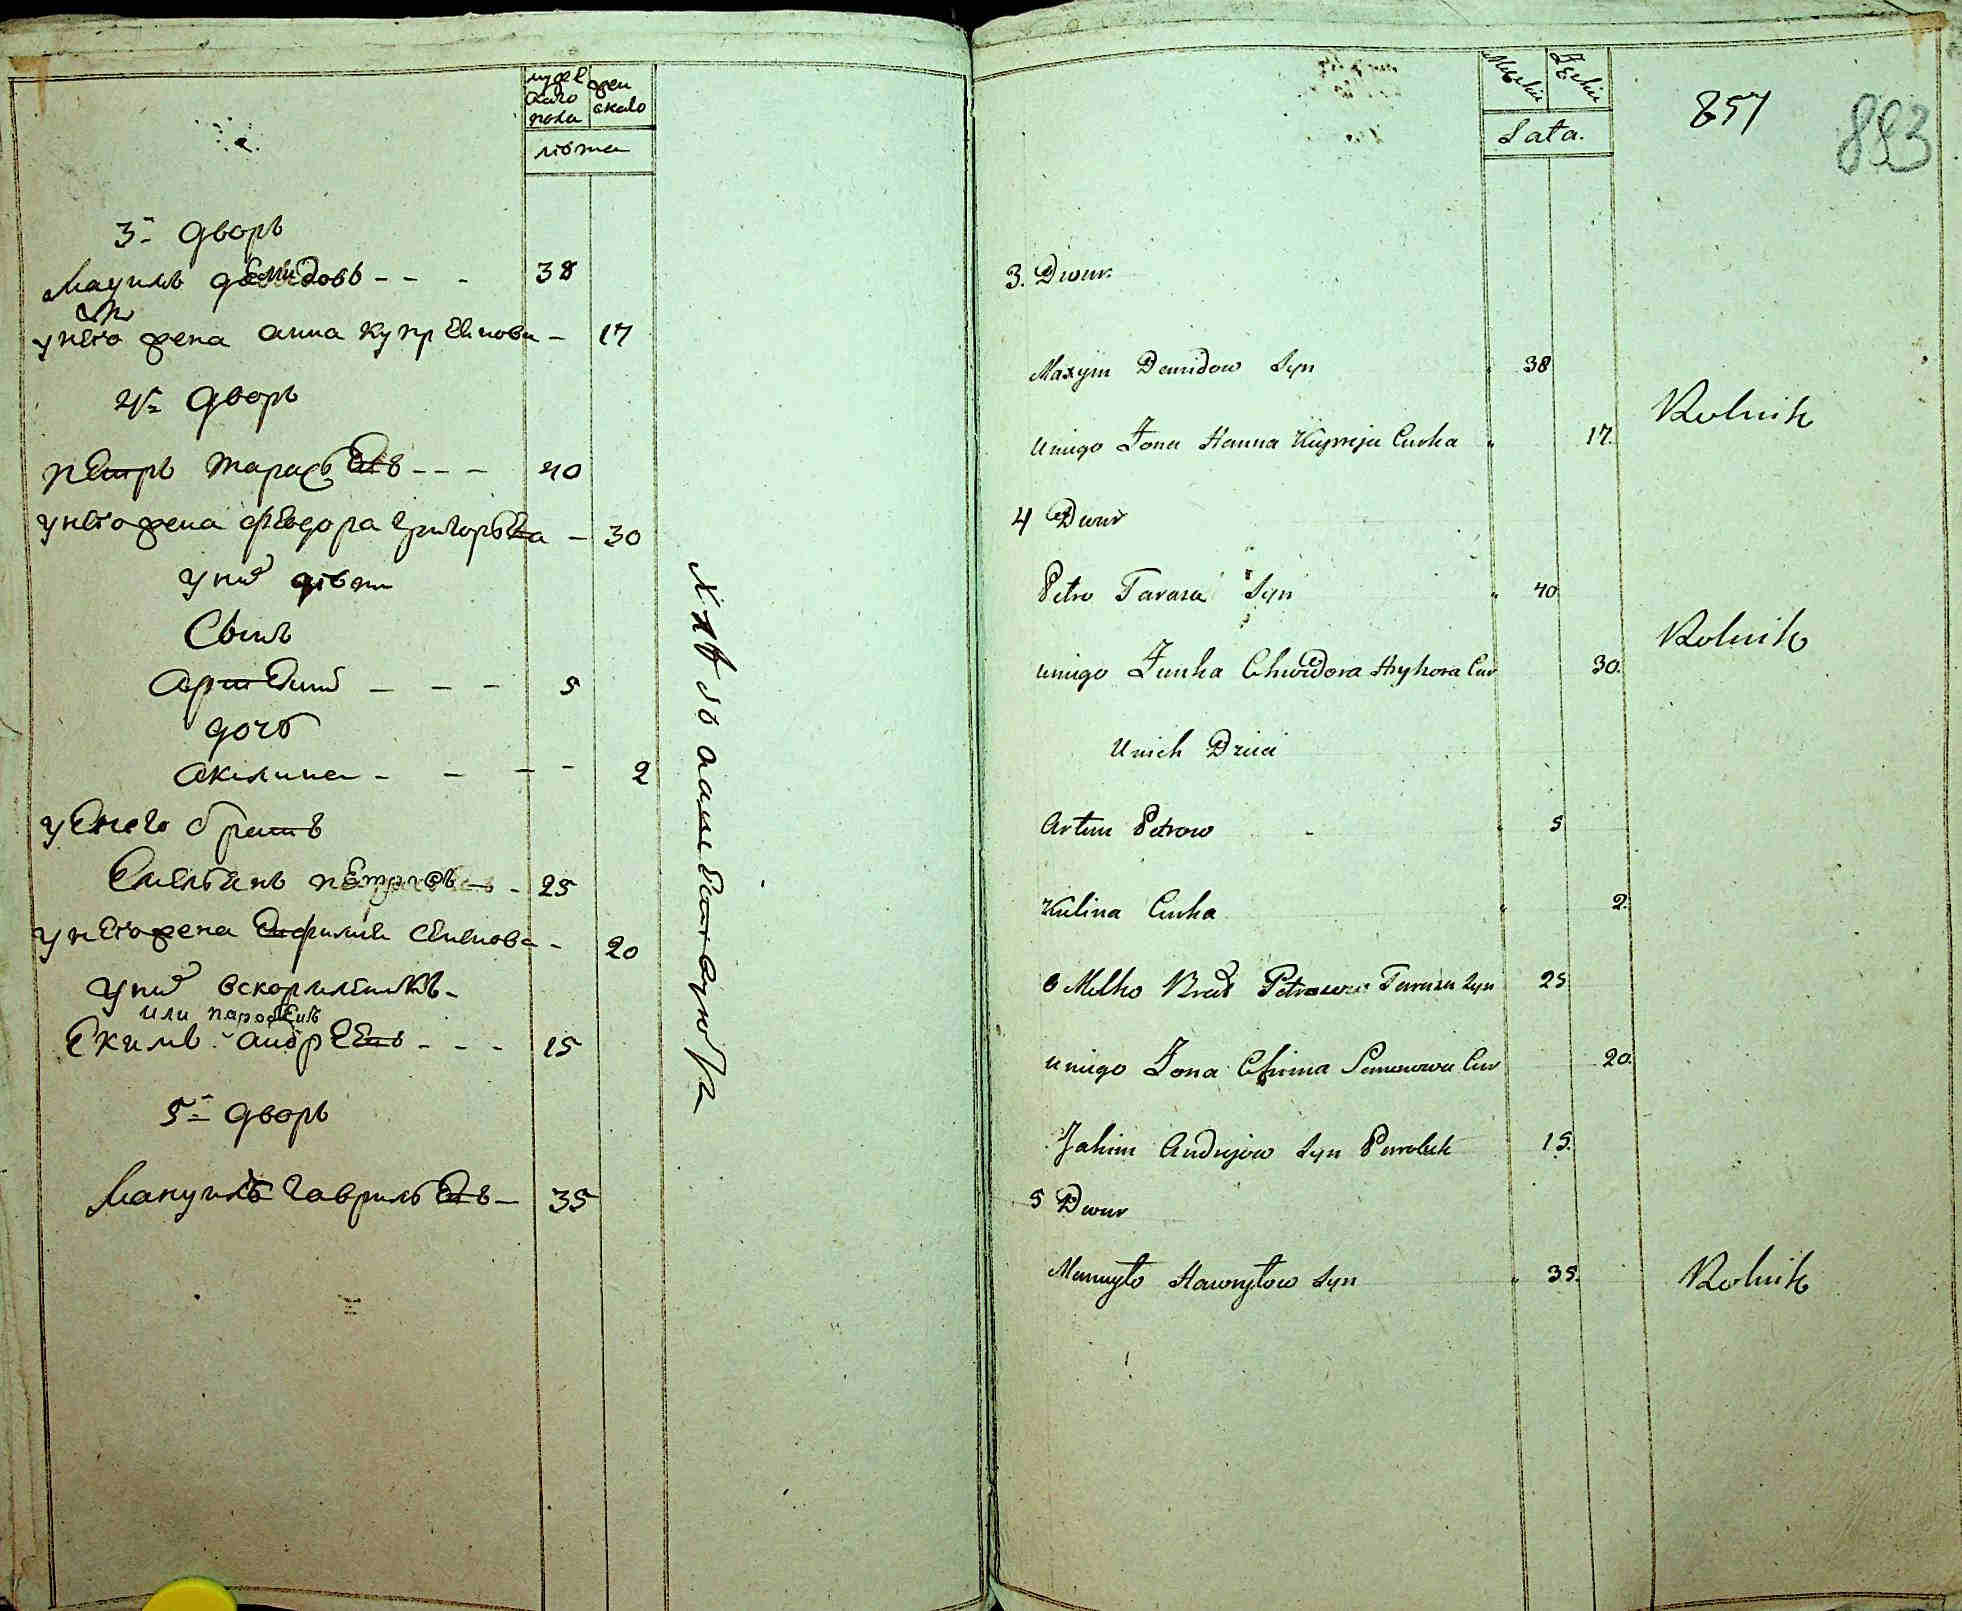 мужескаго пола
женскаго
лѣта
3й дворъ
Максимъ демидовъ - - - 38
у нево жена анна купреянова - 17
4й дворъ
петръ тарасьевъ - - - 40
у нево жена федора григорьева - 30
у них дѣти
Сынъ
артемий - - - 5
дочь
акилина - - - - 2
у нево братъ
Емельянъ петровъ - 25
у нево жена Афимия семенова - 20
у них вскормленикъ -
или паробекъ
Екимъ андреевъ - - - 15
5й дворъ
Мануила гаврильевъ - 35
Męskie
Żeńskie
Lata.
857
883
3. Dwur
Maxym Demidow Syn 38
Rolnik
uniego Żona Hanna Kupreja Curka 17.
4 Dwur
Petro Tarasa Syn 40
Rolnik
unego Żunka Chwedora Hryhora Cur 30.
Unich Dzieci
Artem Petrow 5
Kulina Curka 2.
Melko Brat Petrowi Tarasa Syn 25
unego Żona Chima Semenowa Cur 20.
Jakim Andrejow Syn Parobek 15.
5 Dwur
Manuyło Hawryłow Syn 35.
Rolnik